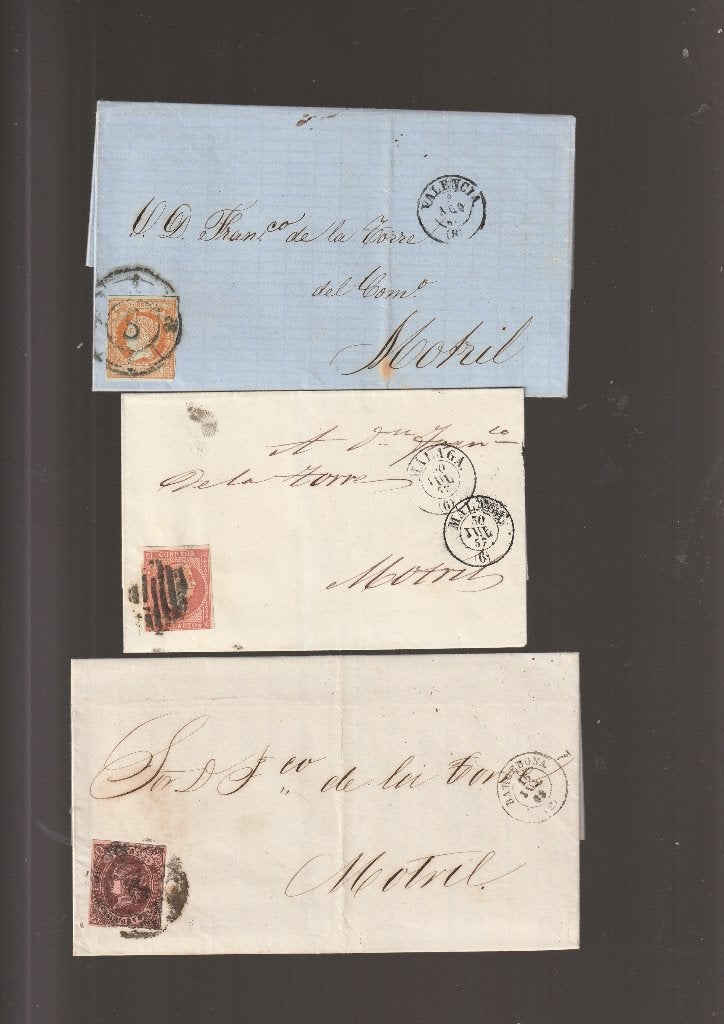 VALENCIA
AGO
(8)
S. D. Fran.co de la Torre
del Com.o
Motril
A Dn Franco
de la Torre
MALAGA
30
JUL
57
(6)
MALAGA
30
JUL
57
(6)
CORREOS
CUARTOS
Motril
Sor D Fco de la Torre
BARCELONA
Motril.